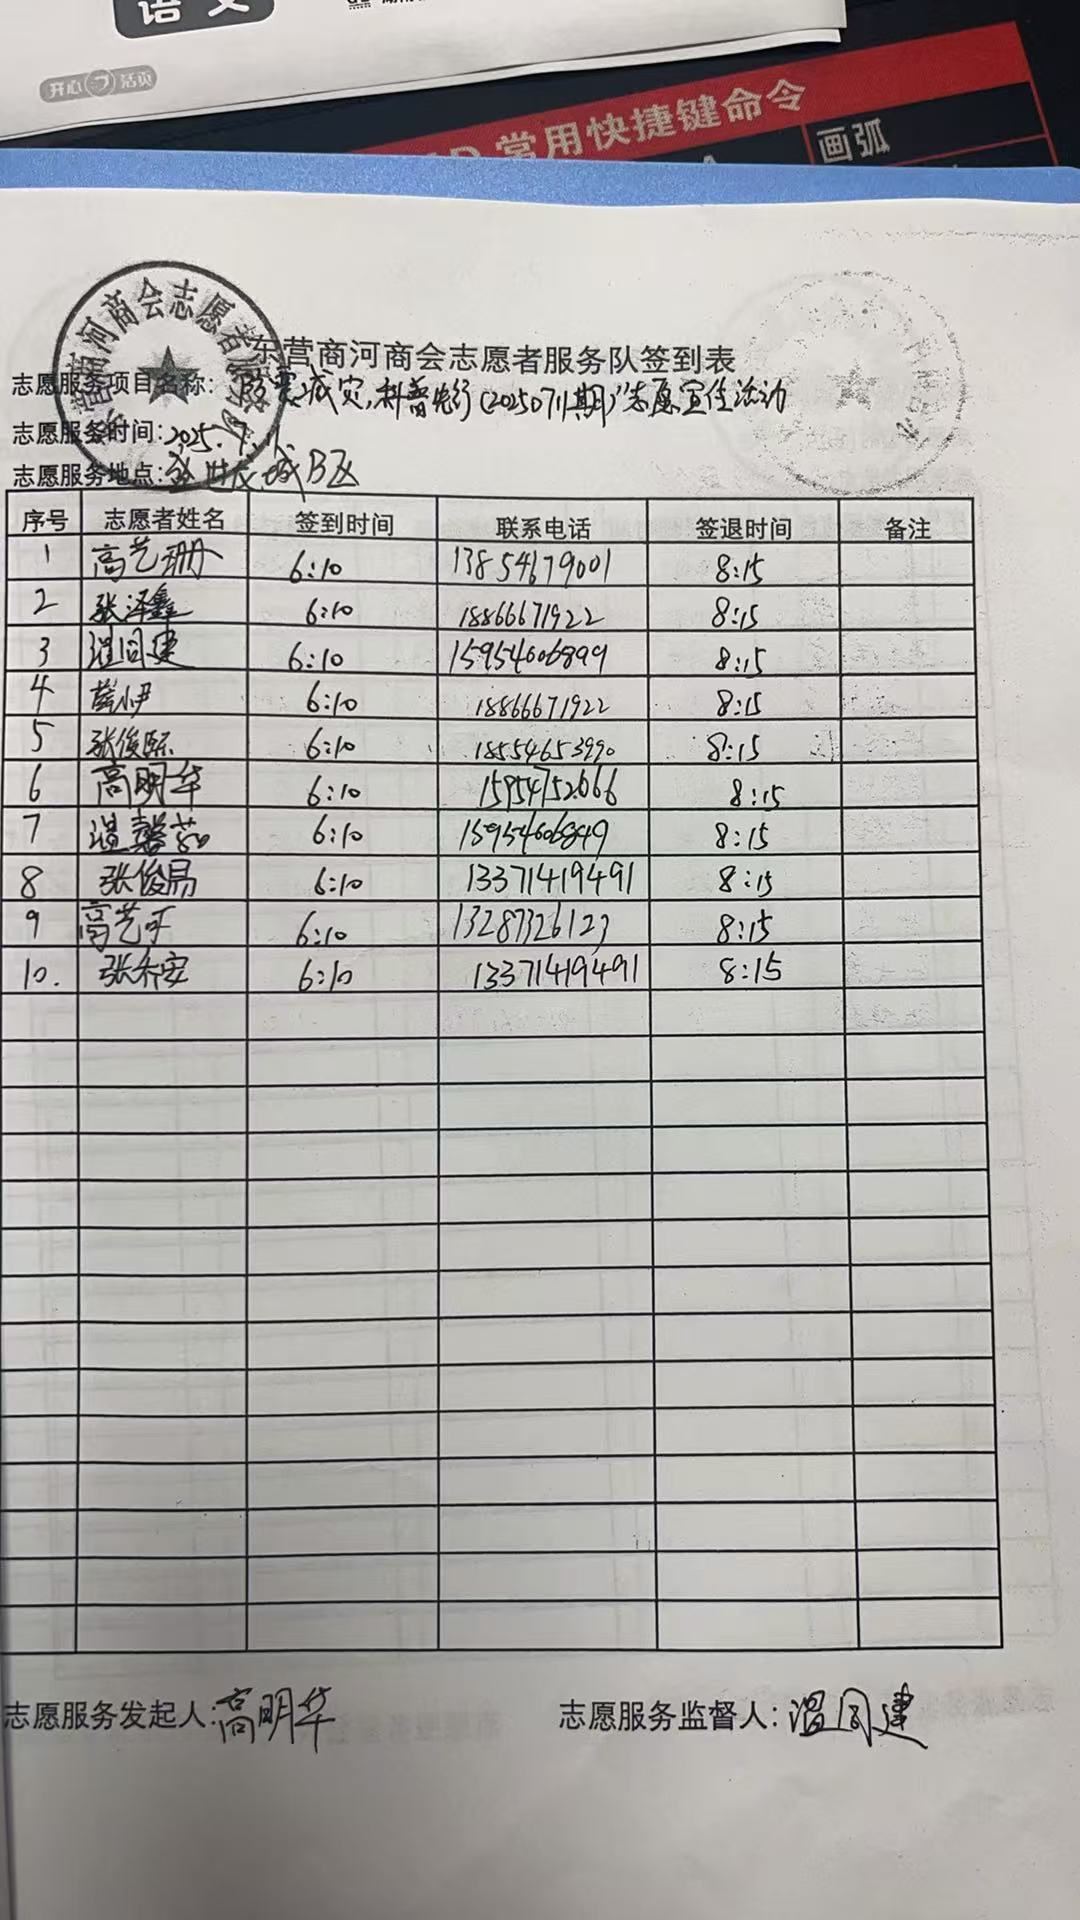 语文
开心 活页
常用快捷键命令
画弧
东营商河商会志愿者服务队签到表
志愿服务项目名称: 防震减灾,科普先行(20250711期)"志愿宣传活动
志愿服务时间: 2025.7.11
志愿服务地点: 盛世龙城B区
序号 志愿者姓名 签到时间 联系电话 签退时间 备注
1 高艺珊 6:10 13854679001 8:15
2 张泽鑫 6:10 18866671922 8:15
3 温同建 6:10 15954606899 8:15
4 薛小伊 6:10 18866671922 8:15
5 张俊熙 6:10 18554653990 8:15
6 高明华 6:10 15954752666 8:15
7 温馨茹 6:10 15954606849 8:15
8 张俊易 6:10 13371419491 8:15
9 高艺可 6:10 13287326123 8:15
10. 张乔安 6:10 13371419491 8:15
志愿服务发起人: 高明华 志愿服务监督人: 温同建